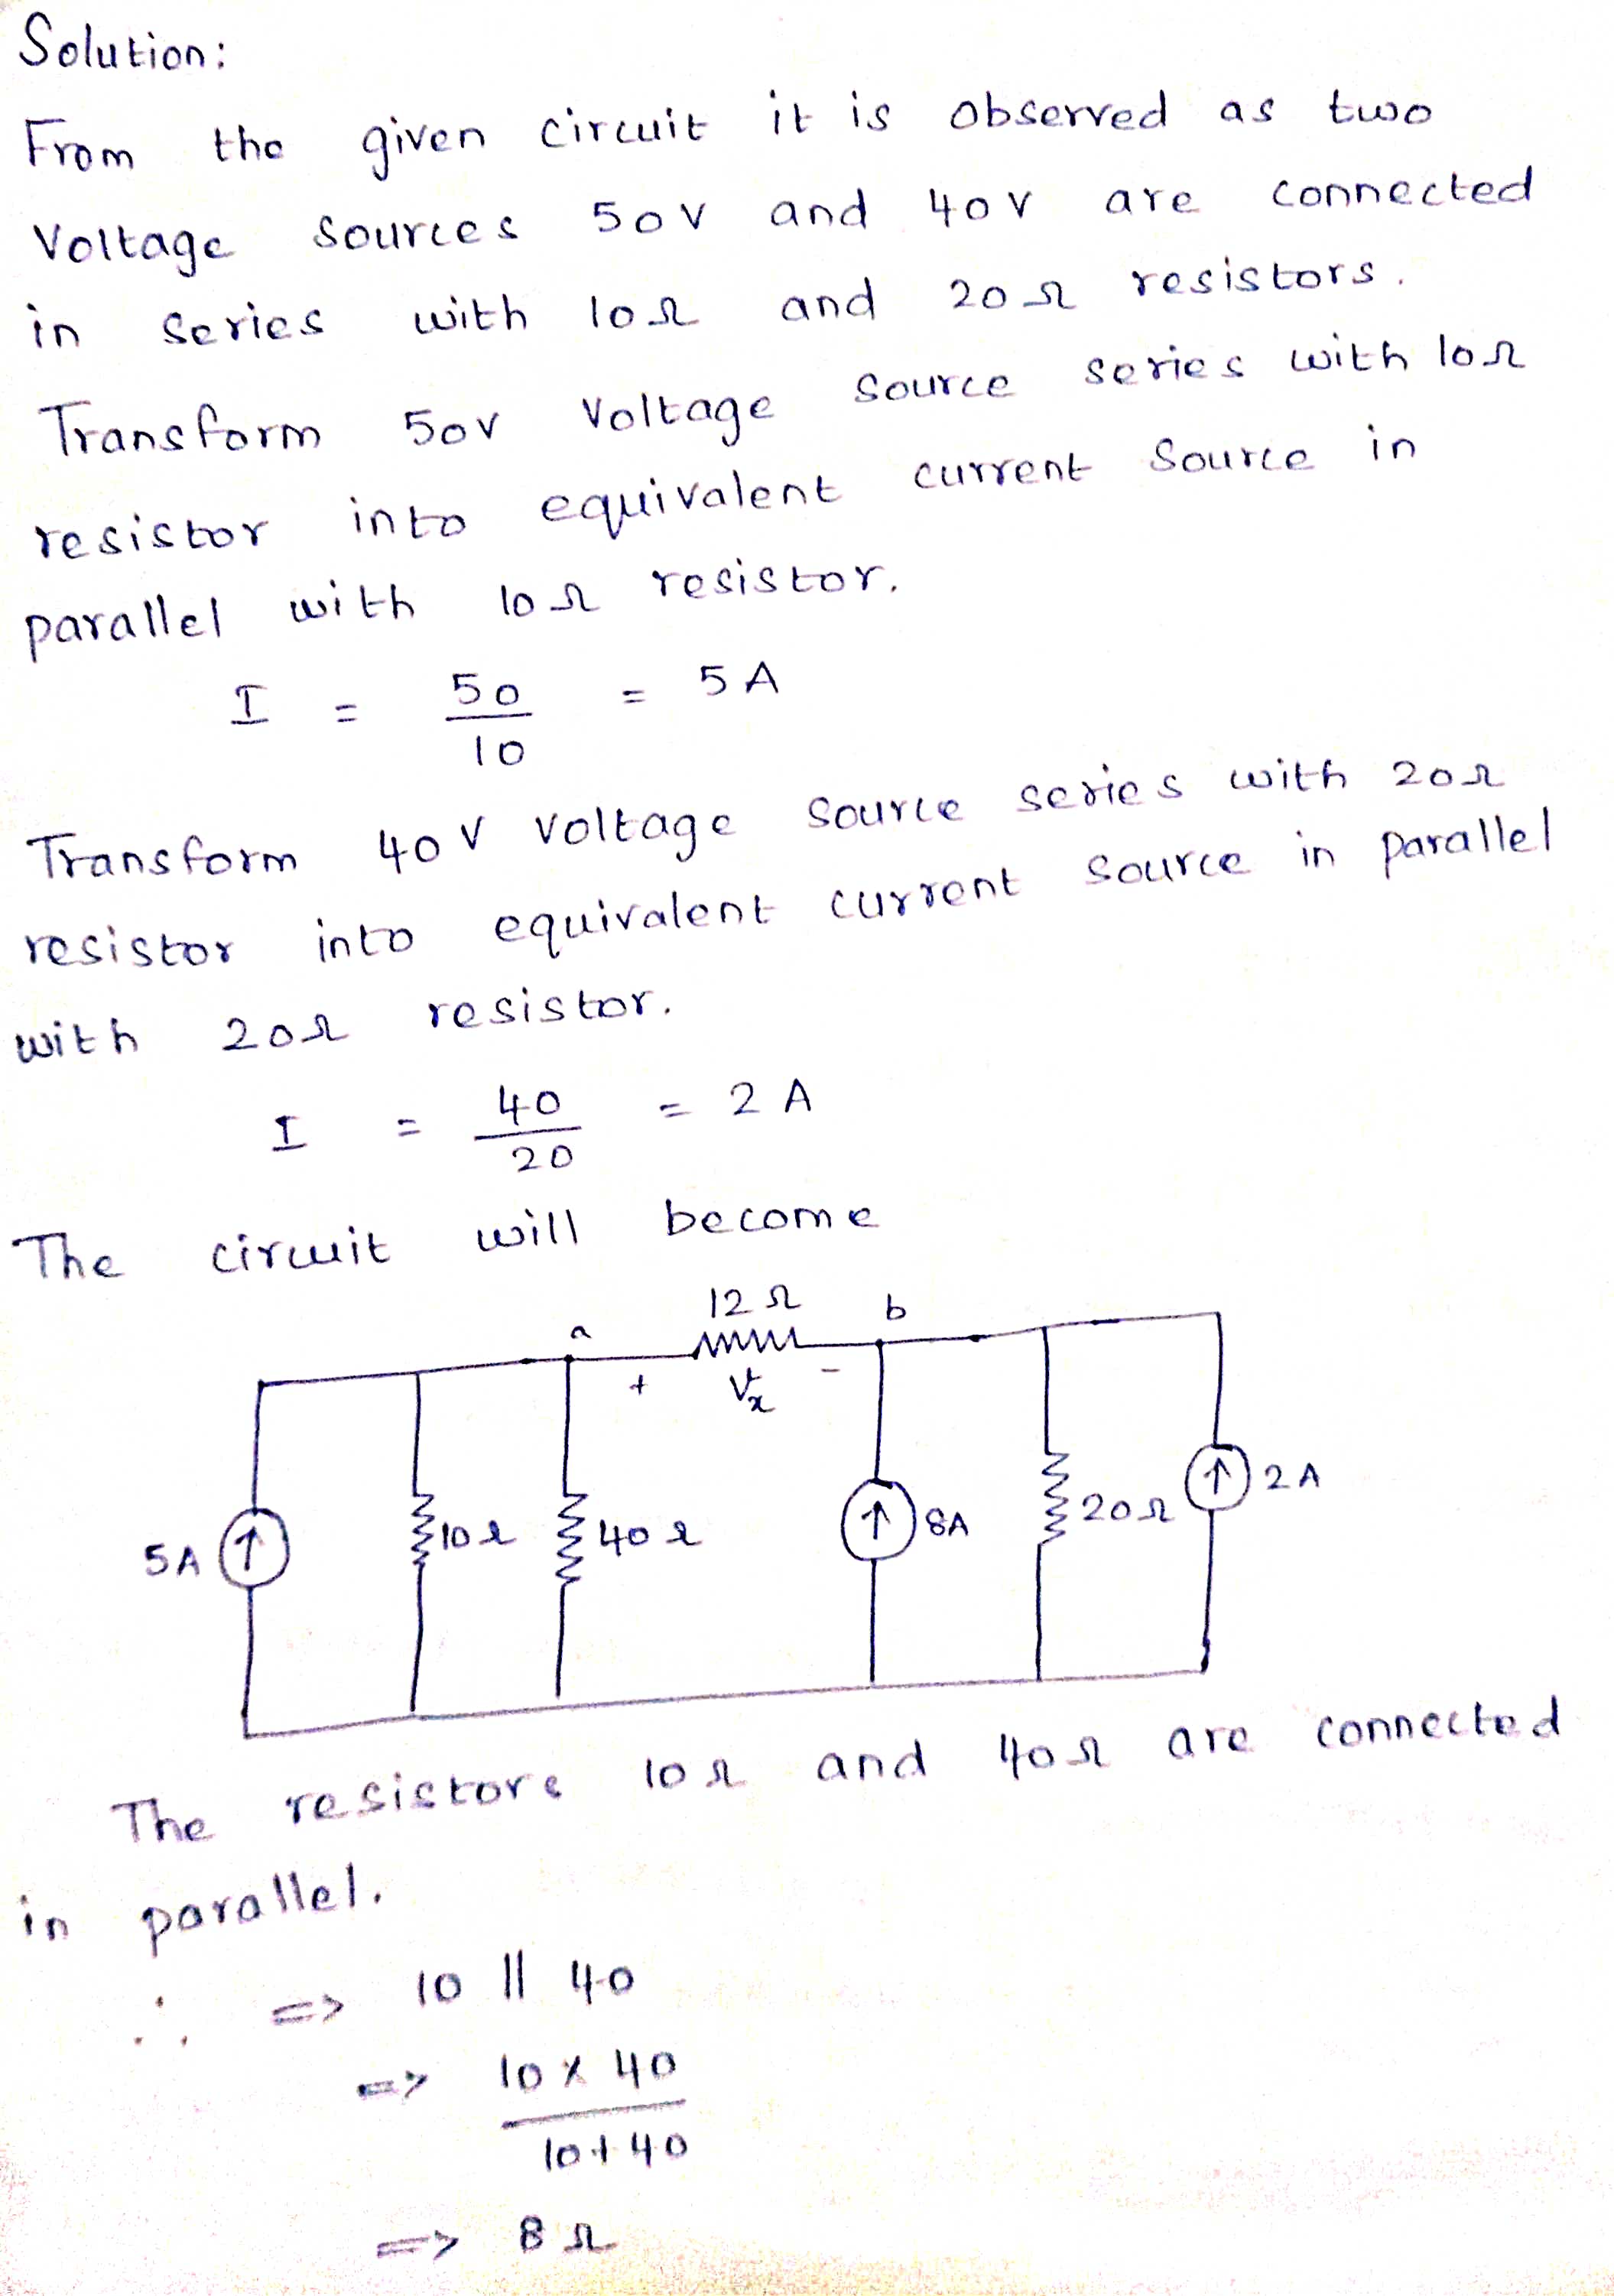 Solution:
From the given circuit it is observed as two
Voltage sources 50V and 40V are connected
in series with 10Ω and 20Ω resistors.
Transform 50V Voltage source series with 10Ω
resistor into equivalent current source in
parallel with 10Ω resistor.
I = 50/10 = 5A
Transform 40V voltage source series with 20Ω
resistor into equivalent current source in parallel
with 20Ω resistor.
I = 40/20 = 2A
The circuit will become
12Ω
a b
+ Vx -
5A 10Ω 40Ω 8A 20Ω 2A
The resistors 10Ω and 40Ω are connected
in parallel.
∴ => 10 || 40
=> 10 x 40 / 10+40
=> 8Ω